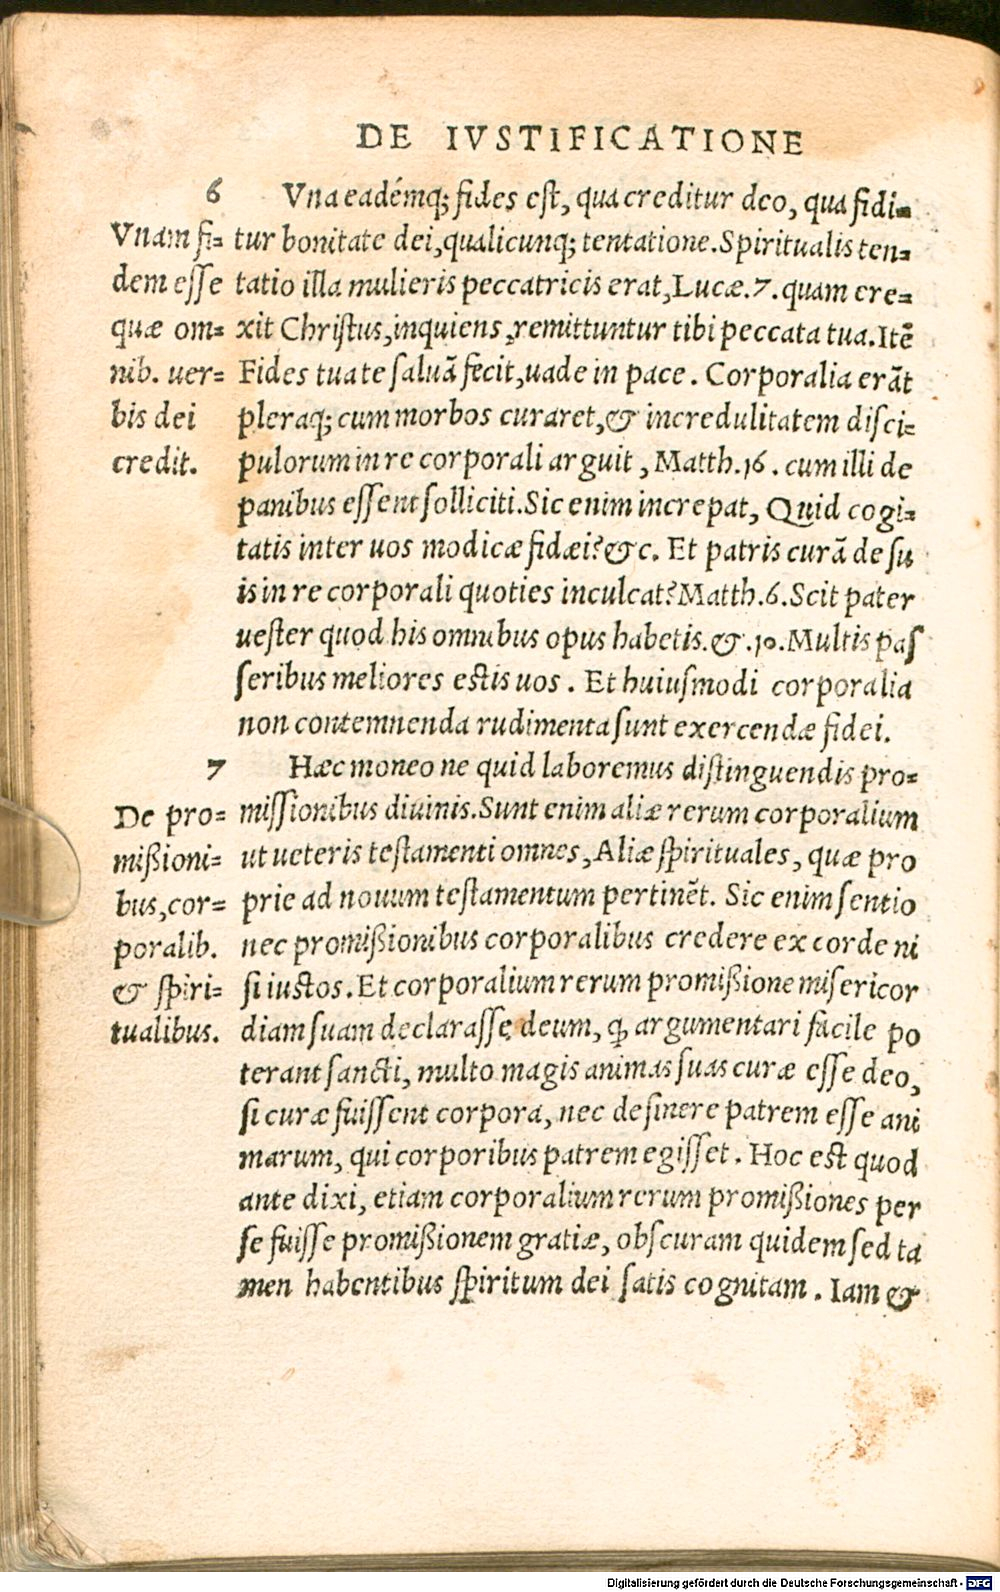 DE IVSTIFICATIONE
6 Vna eadémq; fides est, qua creditur deo, qua fidi-
tur bonitate dei, qualicunq; tentatione. Spiritualis ten-
tatio illa mulieris peccatricis erat, Lucæ. 7. quam ere-
xit Christus, inquiens, remittuntur tibi peccata tua. Itē
Fides tua te saluā fecit, uade in pace. Corporalia erāt
pleraq; cum morbos curaret, & incredulitatem disci-
pulorum in re corporali arguit, Matth. 16. cum illi de
panibus essent solliciti. Sic enim increpat, Quid cogi-
tatis inter uos modicæ fidæi? &c. Et patris curā de su
is in re corporali quoties inculcat? Matth. 6. Scit pater
uester quod his omnibus opus habetis. &. 10. Multis pas
seribus meliores estis uos. Et huiusmodi corporalia
non contemnenda rudimenta sunt exercendæ fidei.
Vnam fi-
dem esse
quæ om-
nib. uer-
bis dei
credit.
7 Hæc moneo ne quid laboremus distinguendis pro-
missionibus diuinis. Sunt enim aliæ rerum corporalium
ut ueteris testamenti omnes, Aliæ spirituales, quæ pro
prie ad nouum testamentum pertinēt. Sic enim sentio
nec promißionibus corporalibus credere ex corde ni
si iustos. Et corporalium rerum promißione misericor
diam suam declarasse deum, ꝙ argumentari facile po
terant sancti, multo magis animas suas curæ esse deo,
si curæ fuissent corpora, nec desinere patrem esse ani
marum, qui corporibus patrem egisset. Hoc est quod
ante dixi, etiam corporalium rerum promißiones per
se fuisse promißionem gratiæ, obscuram quidem sed ta
men habentibus spiritum dei satis cognitam. Iam &
De pro-
mißioni-
bus, cor-
poralib.
& spiri-
tualibus.
Digitalisierung gefördert durch die Deutsche Forschungsgemeinschaft - DFG